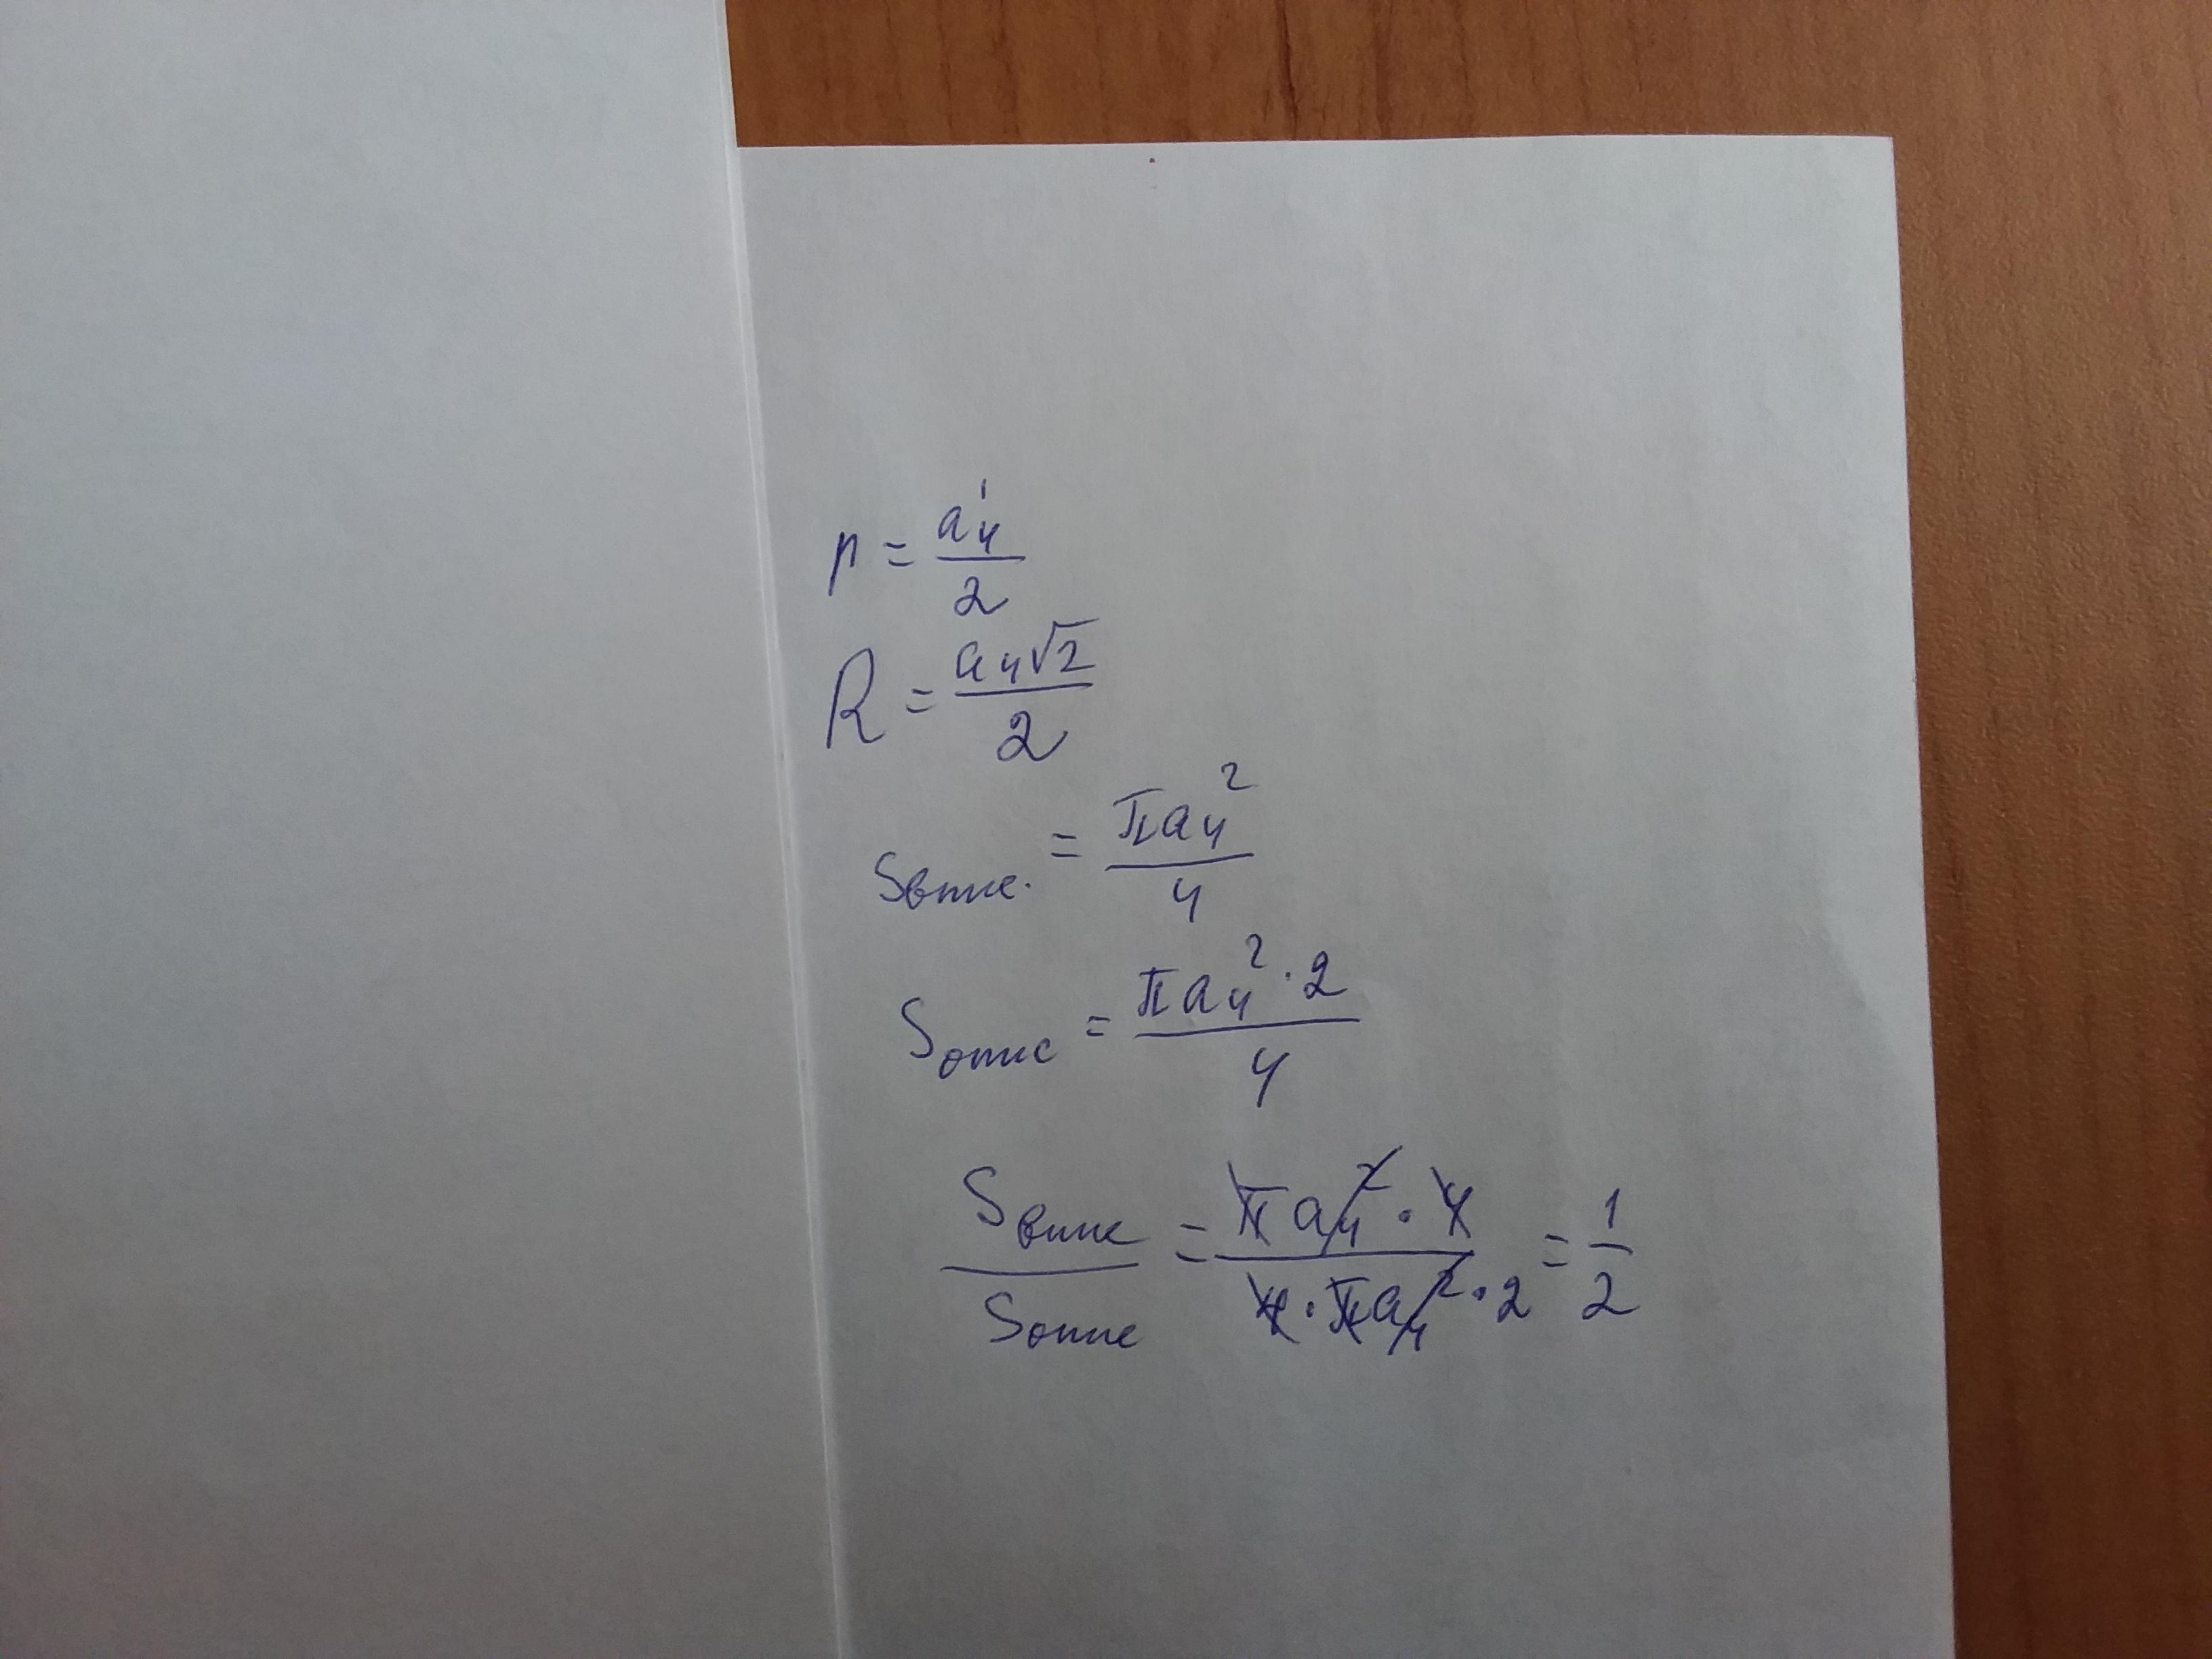 r = a₄/2
R = a₄√2/2
Sвпис. = πa₄²/4
Sопис = πa₄²·2/4
Sвпис/Sопис = πa₄²·4/4·πa₄²·2 = 1/2